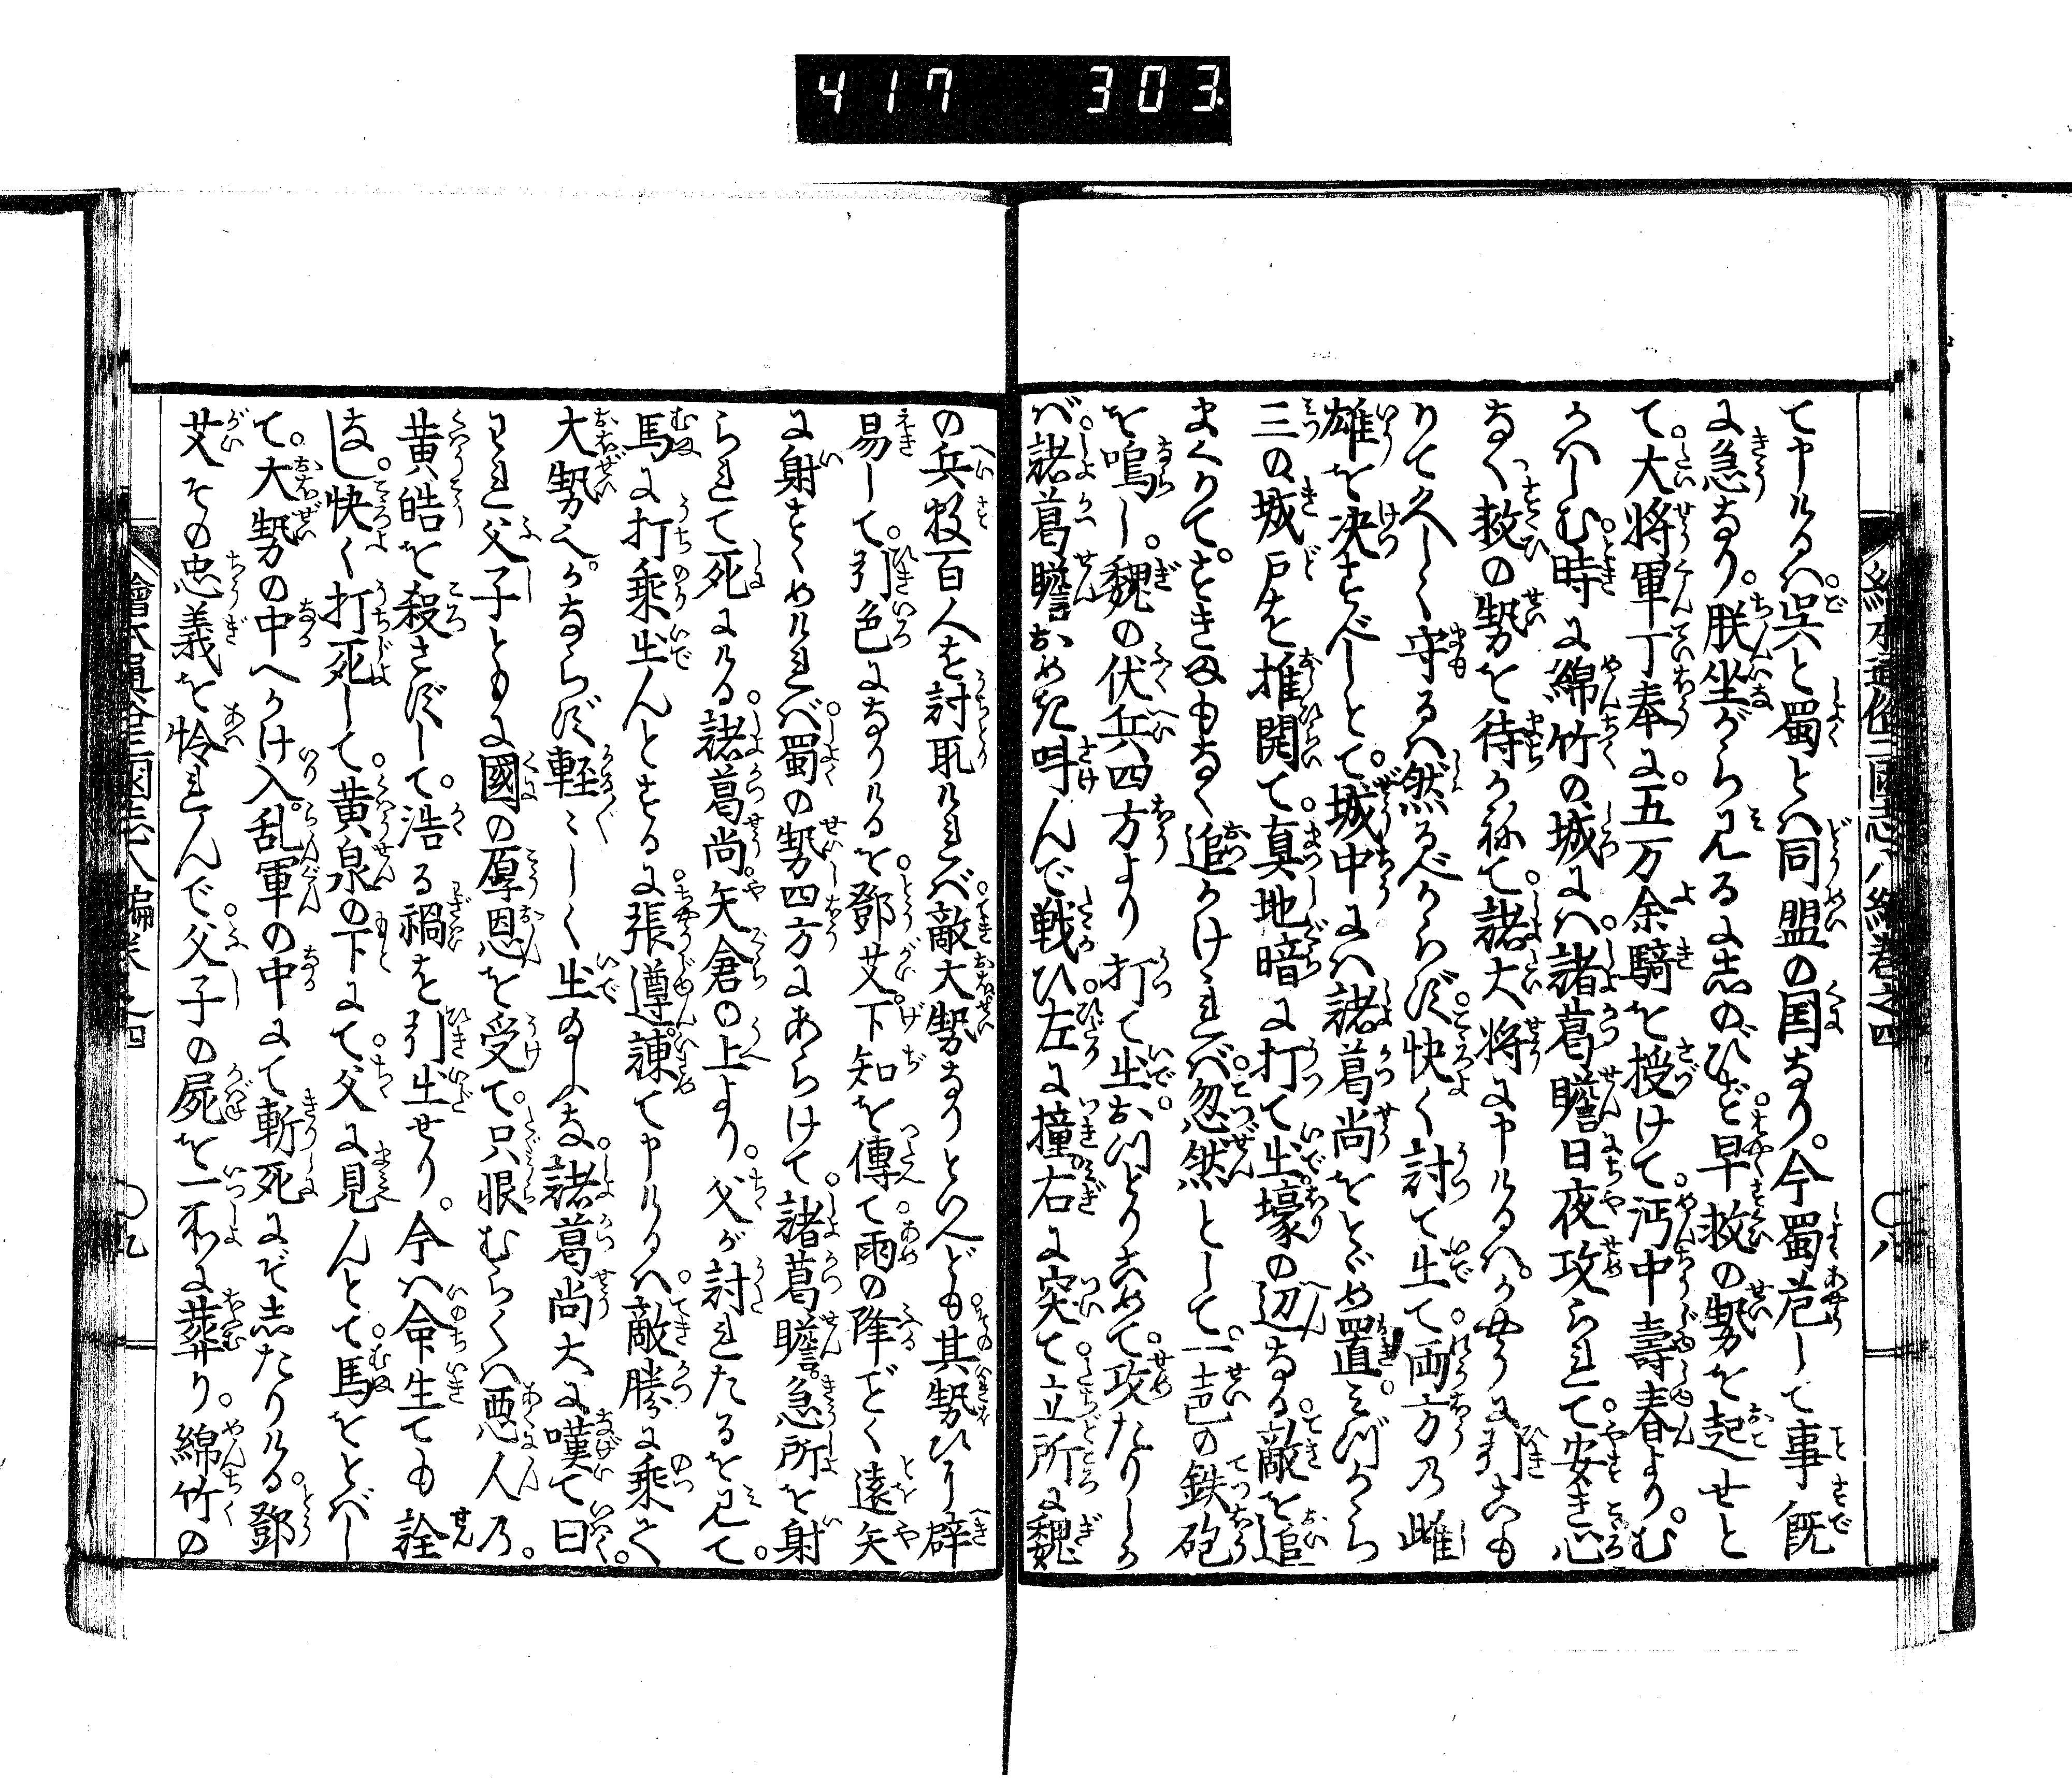 417 303
て申ける八。呉と蜀と八同盟の国なり。今蜀危して事既
に急なり。朕坐がら見るに忍のびず。早救の勢を起せと
て。大将軍丁奉に。五万余騎を授けて。沔中壽春より。む
かハしむ。時に綿竹の城にハ。諸葛瞻日夜攻られて。安き心
なく。救の勢を待かねて。諸大将に申けるハ。かやうに引こも
りて久しく守るハ然るべからず。快く討て出て。両方乃雌
雄を決すべしとて。城中にハ諸葛尚をとゞめ置。ミづから
三の城戸を推開て。真地暗に打て出。壕の辺なる敵を追
まくりて。すきまもなく追かけゝれバ。忽然として。一声の鉄砲
を鳴し。魏の伏兵四方より打て出。おつとりこめて。攻たりしか
バ。諸葛瞻おめき叫んで戦ひ。左に撞。右に突て。立所に魏
の兵数百人を討取けれバ。敵大勢なりといへども。其勢ひに辟
易して。引色になりけるを。鄧艾。下知を傳て。雨の降ごとく遠矢
に射すくめけれバ。蜀の勢四方にあらけて。諸葛瞻。急所を射
られて死にける。諸葛尚。矢倉の上より。父が討れたるを見て。
馬に打乗出んとするに。張遵諫て申けるハ。敵勝に乗て
大勢なり。かならず軽々しく出給ふな。諸葛尚大に嘆て曰。
われ父子ともに國の厚恩を受て。只恨むらくハ悪人乃。
黄皓を殺さずして。浩る禍を引出せり。今ハ命生ても詮
なし。快く打死して。黄泉の下にて。父に見んとて。馬をとばし
て。大勢の中へかけ入。乱軍の中にて斬死にぞしたりける。鄧
艾その忠義を怜れんで。父子の屍を一所に葬り。綿竹の